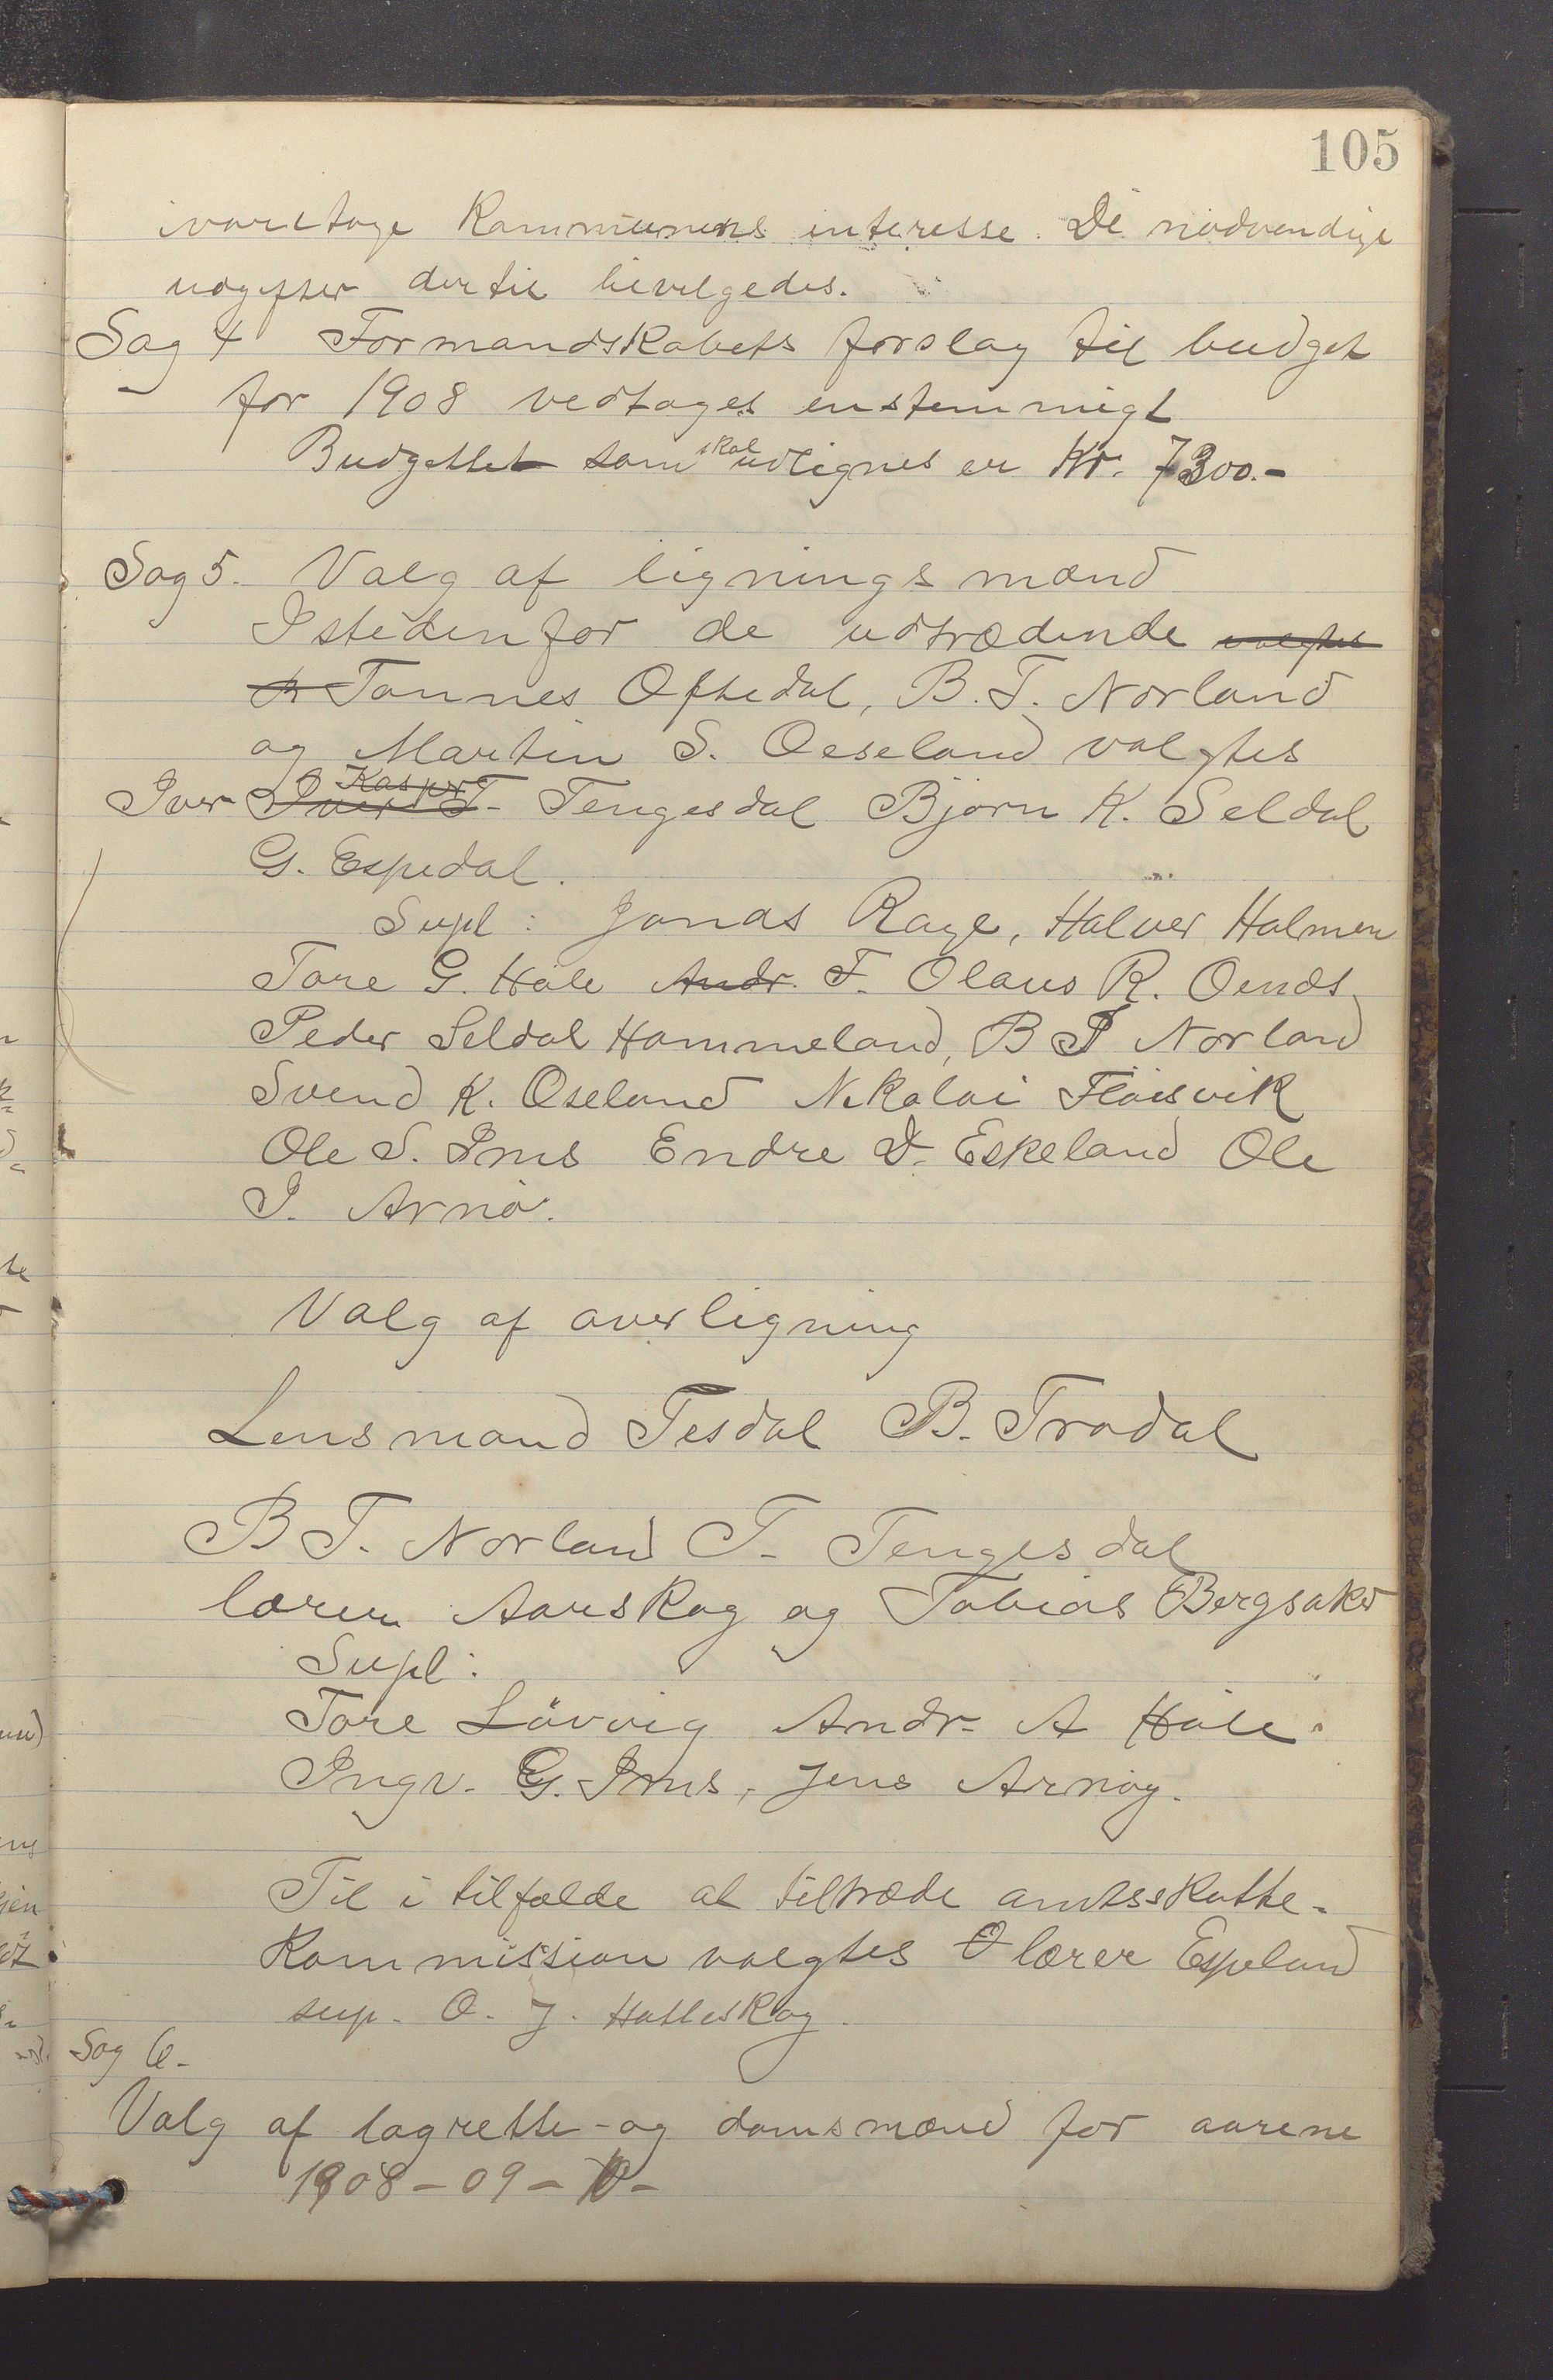 105
ivaretage Kommunens interesse. De nødvendige
udgifter dertil bevilgedes.
Sag 4 Formandskabets forslag til budget
for 1908 vedtages enstemmigt
Budgettet som skal udlignes er Kr. 7300.-
Sag 5. Valg af ligningsmænd
Istedenfor de udtrædende valgtes
Tønnes Oftedal, B. T. Norland
og Martin S. Oeseland valgtes
Iver Iver T. Kasper Tengesdal Bjørn K. Seldal
G. Espedal.
Supl: Jonas Rage, Halver Halmen
Tore G. Høle Andr. F. Olaus R. Oends
Peder Seldal Hommeland, B T Norland
Svend K. Oseland Nikolai Fløisvik
Ole S. Ims Endre D. Eskeland Ole
I. Arnø.
Valg af overligning
Lensmand Tesdal B. Trodal
B T. Norland T. Tengesdal
lærer Aarskog og Tobias Bergsaker
Supl:
Tore Lövvig Andr. A Høle.
Ingv. G. Ims, Jens Arnøy.
Til i tilfælde at tiltræde amtsskatte-
Kommission valgtes O lærer Espeland
sup. O. J. Hatleskog.
Sag 6.
Valg af lagrette- og domsmænd for aarene
1908-09-10-